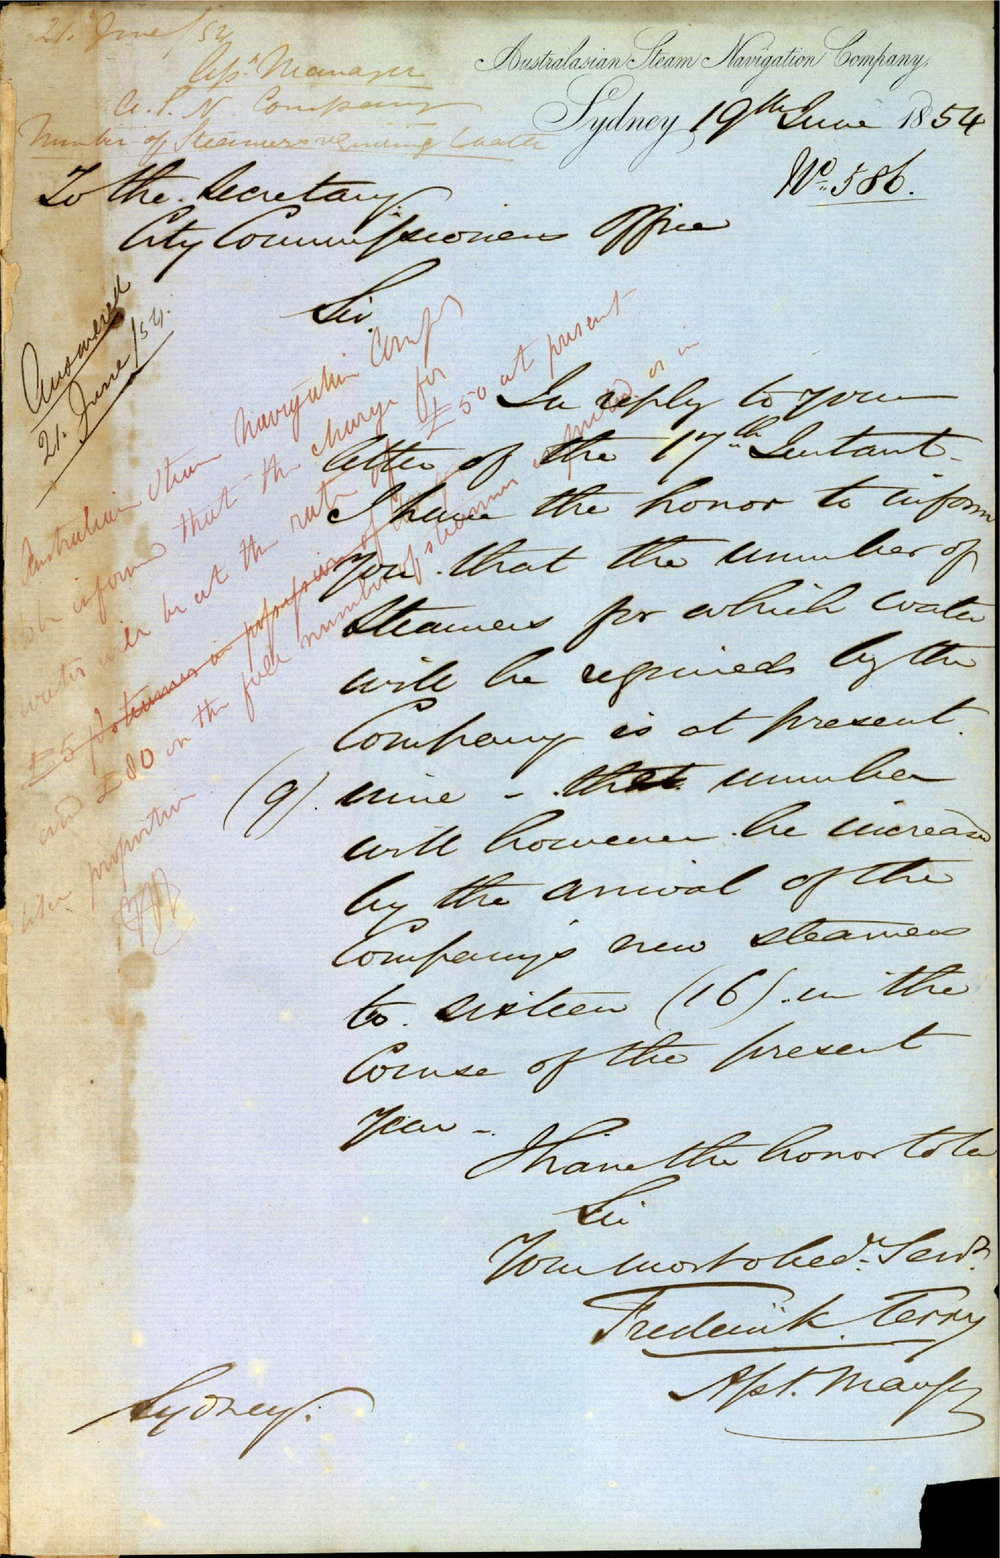 21. June/54
Asst. Manager
A. S. N. Company
Number of Steamers requiring water
Australasian Steam Navigation Company.
Sydney, 19th June 1854
No. 586.
To the Secretary
City Commissioners Office
Answered
21. June/54.
Sir
In reply to your
letter of the 17th Instant
I have the honor to inform
you that the number of
Steamers for which water
will be required by the
Company is at present
(9). nine - that number
will however be increased
by the arrival of the
Company's new steamers
to sixteen (16) in the
Course of the present
year -
I have the honor to be
Sir
Your most obedt. Servt.
Frederick Terry
Asst. Manager
Sydney.
Australasian Steam Navigation Compy
to be informed that the charge for
water will be at the rate of £50 at present
£5 p steamer
and £80 on the full number of steamers or in
like proportion